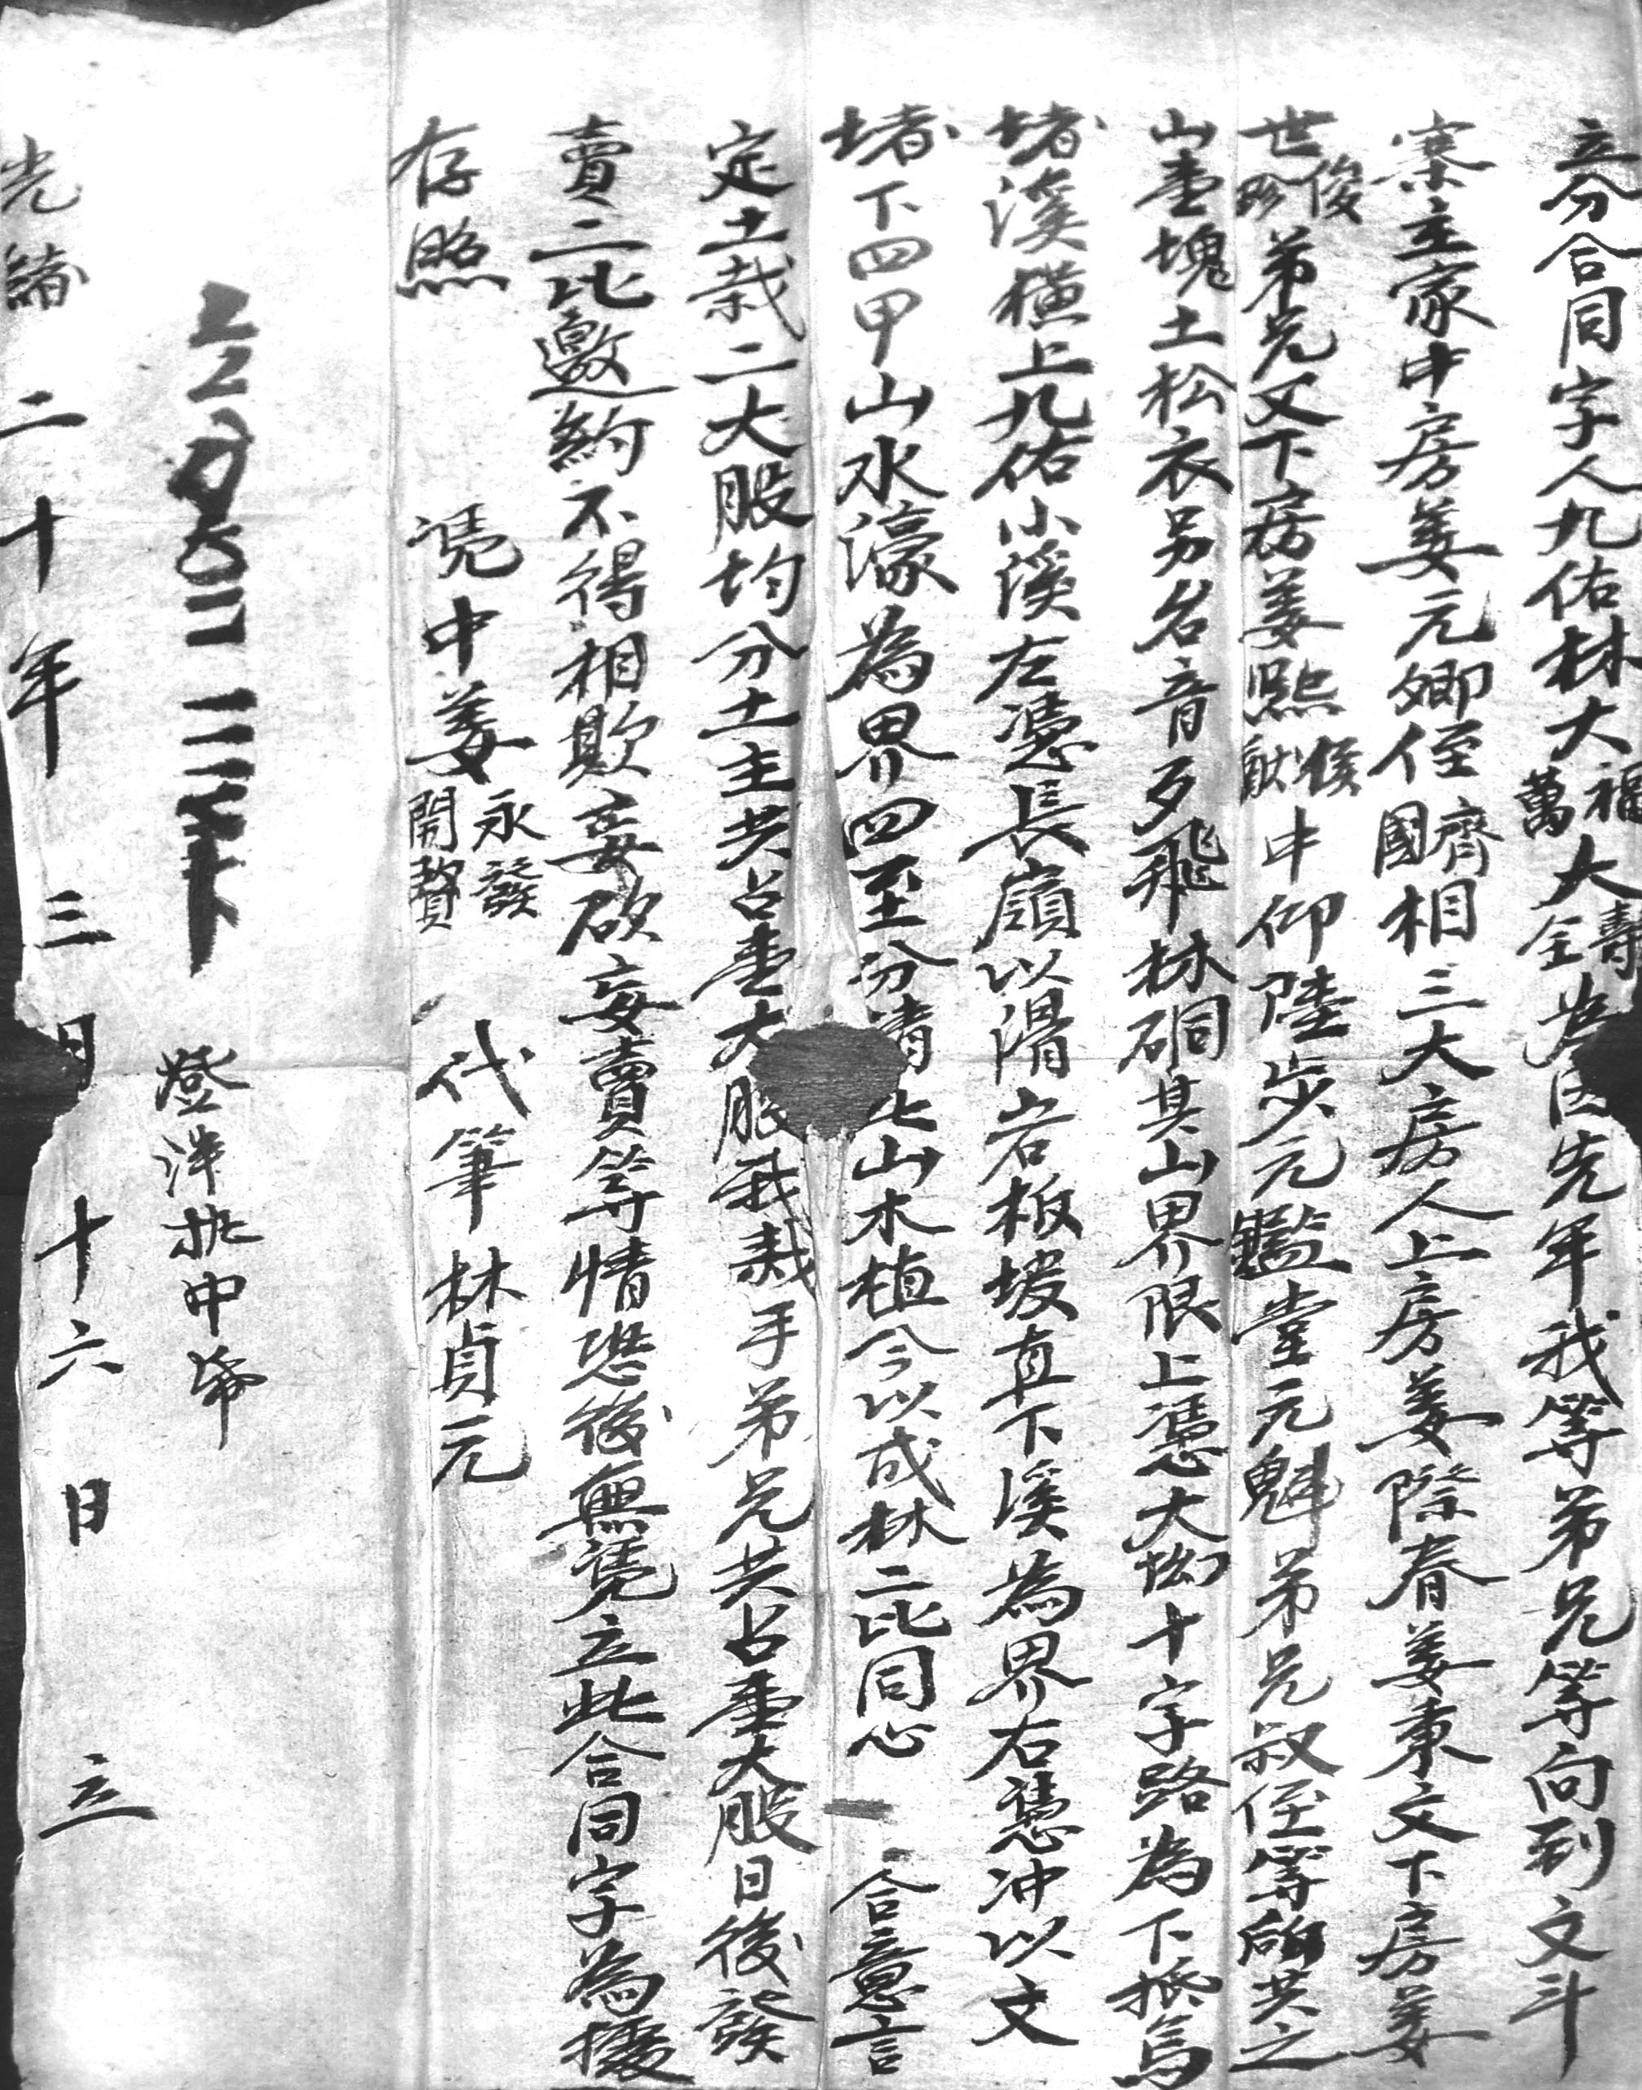 立分合同字人九佑林大福萬大壽全為因先年我等弟兄等向到文斗
寨主家中房姜元卿侄國齊相三大房人上房姜際春姜東文下房姜
世俊珍弟兄又下房姜熙猷侯中仰陸步元鑑堂元魁弟兄叔侄等所共之
山壹塊土松衣另名音歹飛林硐其山界限上憑大坳十字路為下抵烏
堵溪橫上九佑小溪左憑長嶺以滑岩板坡直下溪為界右憑冲以文
堵下四甲山水濠為界四至分清此山木植今以成林二比同心合意言
定土栽二大股均分土主共占壹大股我栽手弟兄共占壹大股日後發
賣二比邀約不得相欺妄砍妄賣等情恐後無凭立此合同字為據
存照 凭中姜永發開贊 代筆林貞元
光緒二十年三月十六日 立